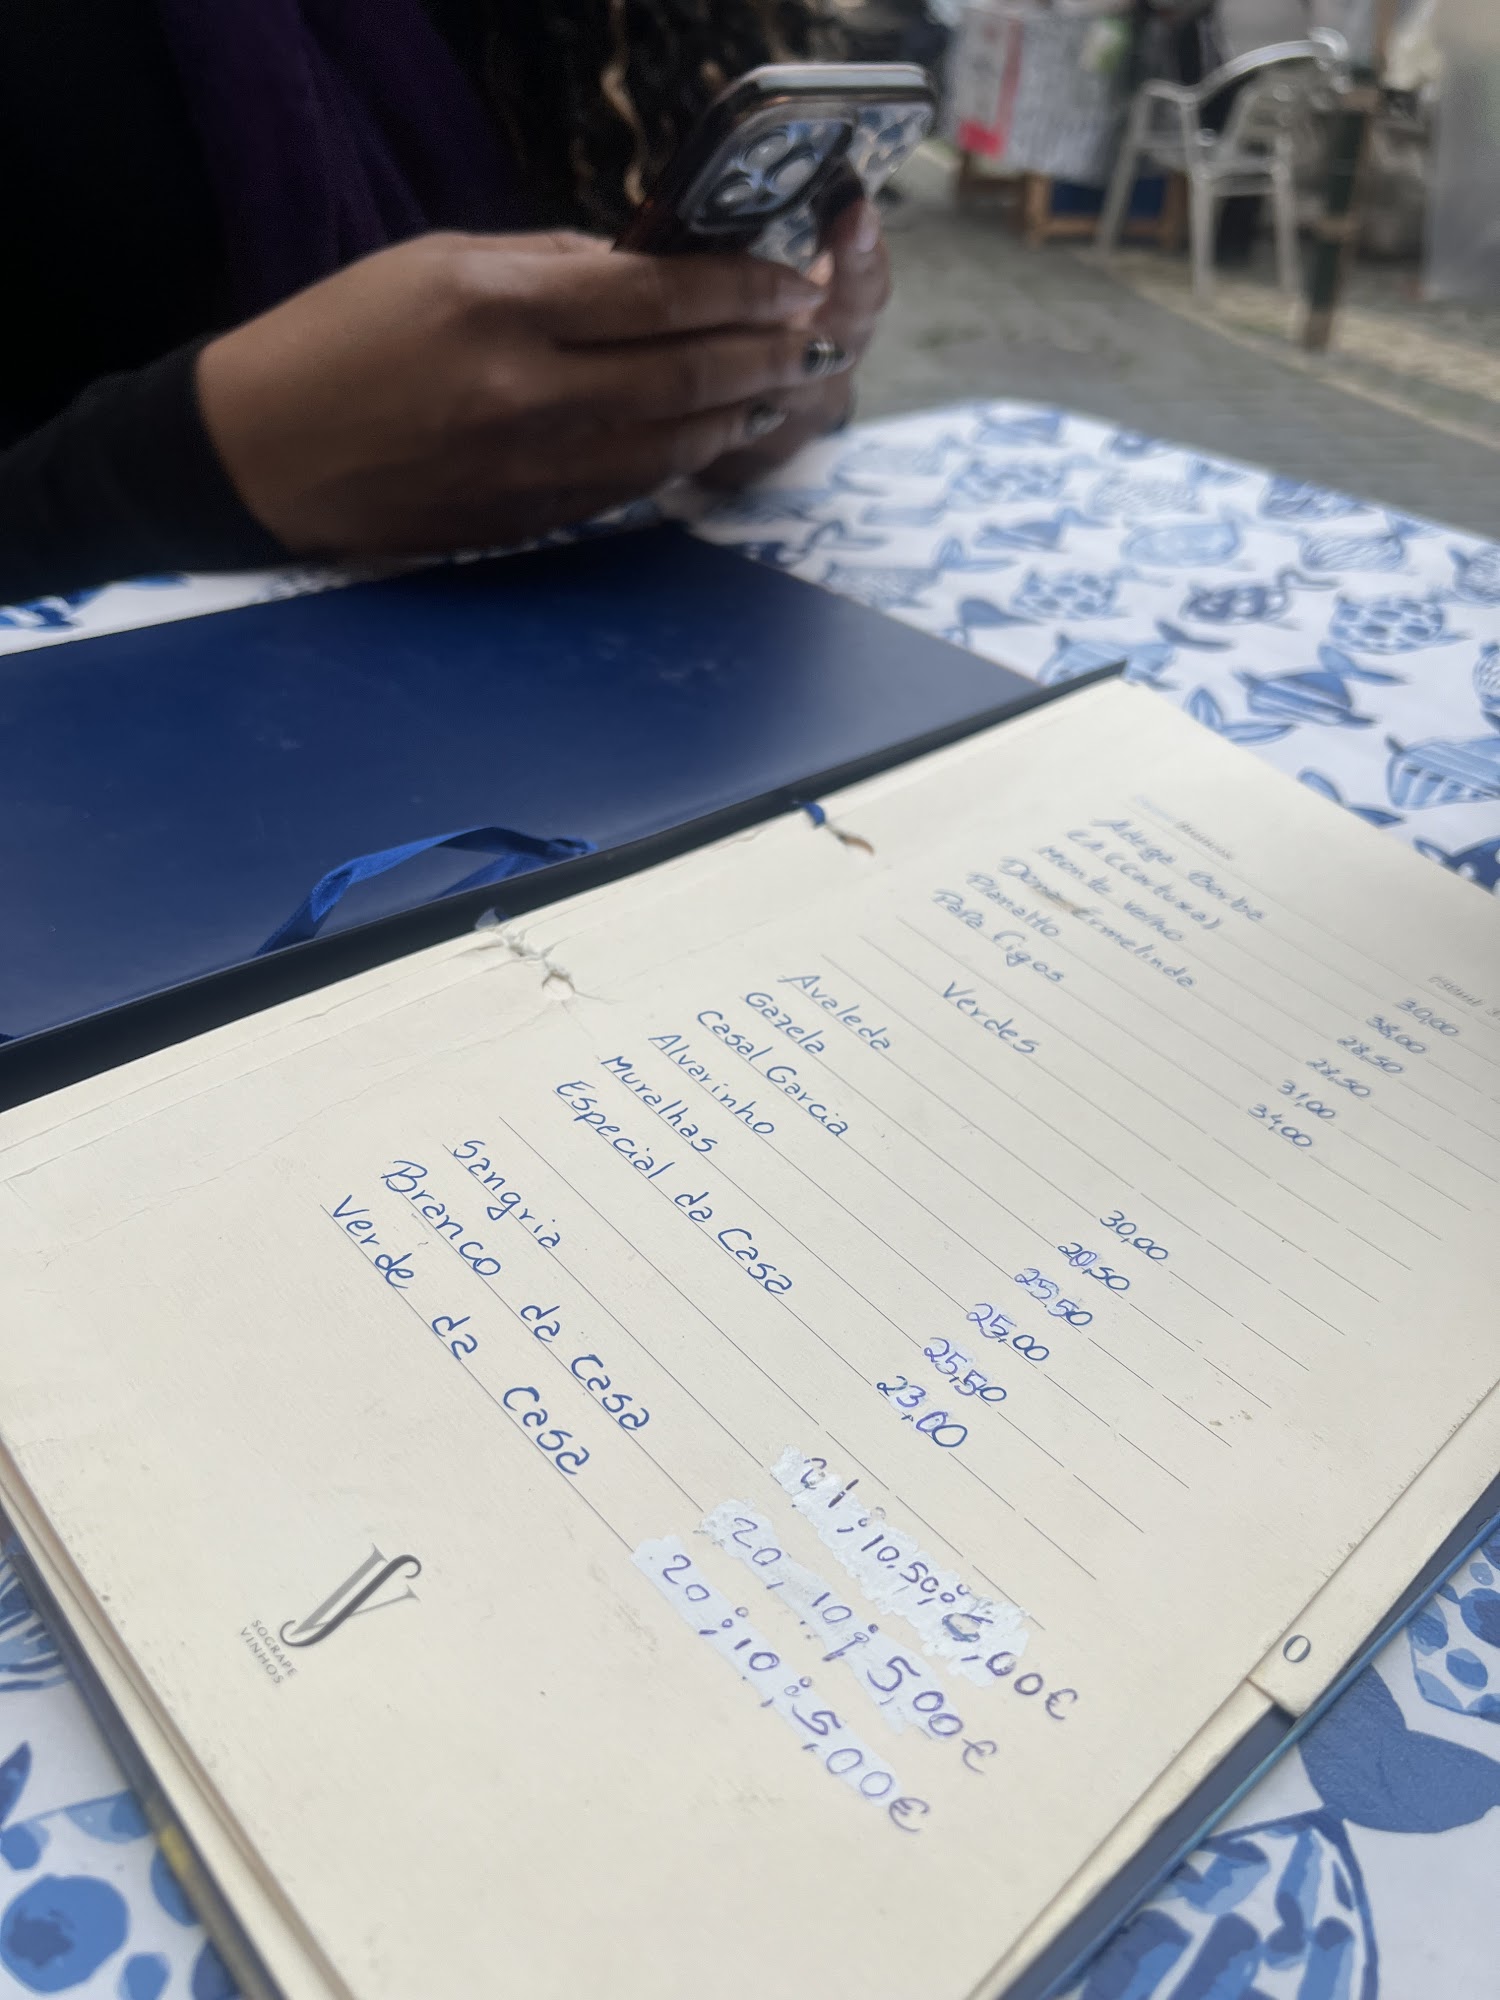 Brancos
Adega Borba 30,00
C.A (Cartuxa) 38,00
Monte Velho 28,50
Dona Ermelinda 28,50
Planalto 31,00
Papa Figos 34,00
Verdes
Avaleda 30,00
Gazela 20,50
Casal Garcia 25,50
Alvarinho 25,00
Muralhas 25,50
Especial da Casa 23,00
Sangria 21; 10.50; ,00€
Branco da Casa 20, 10; 5,00€
Verde da Casa 20; 10; 5,00€
SOGRAPE
VINHOS